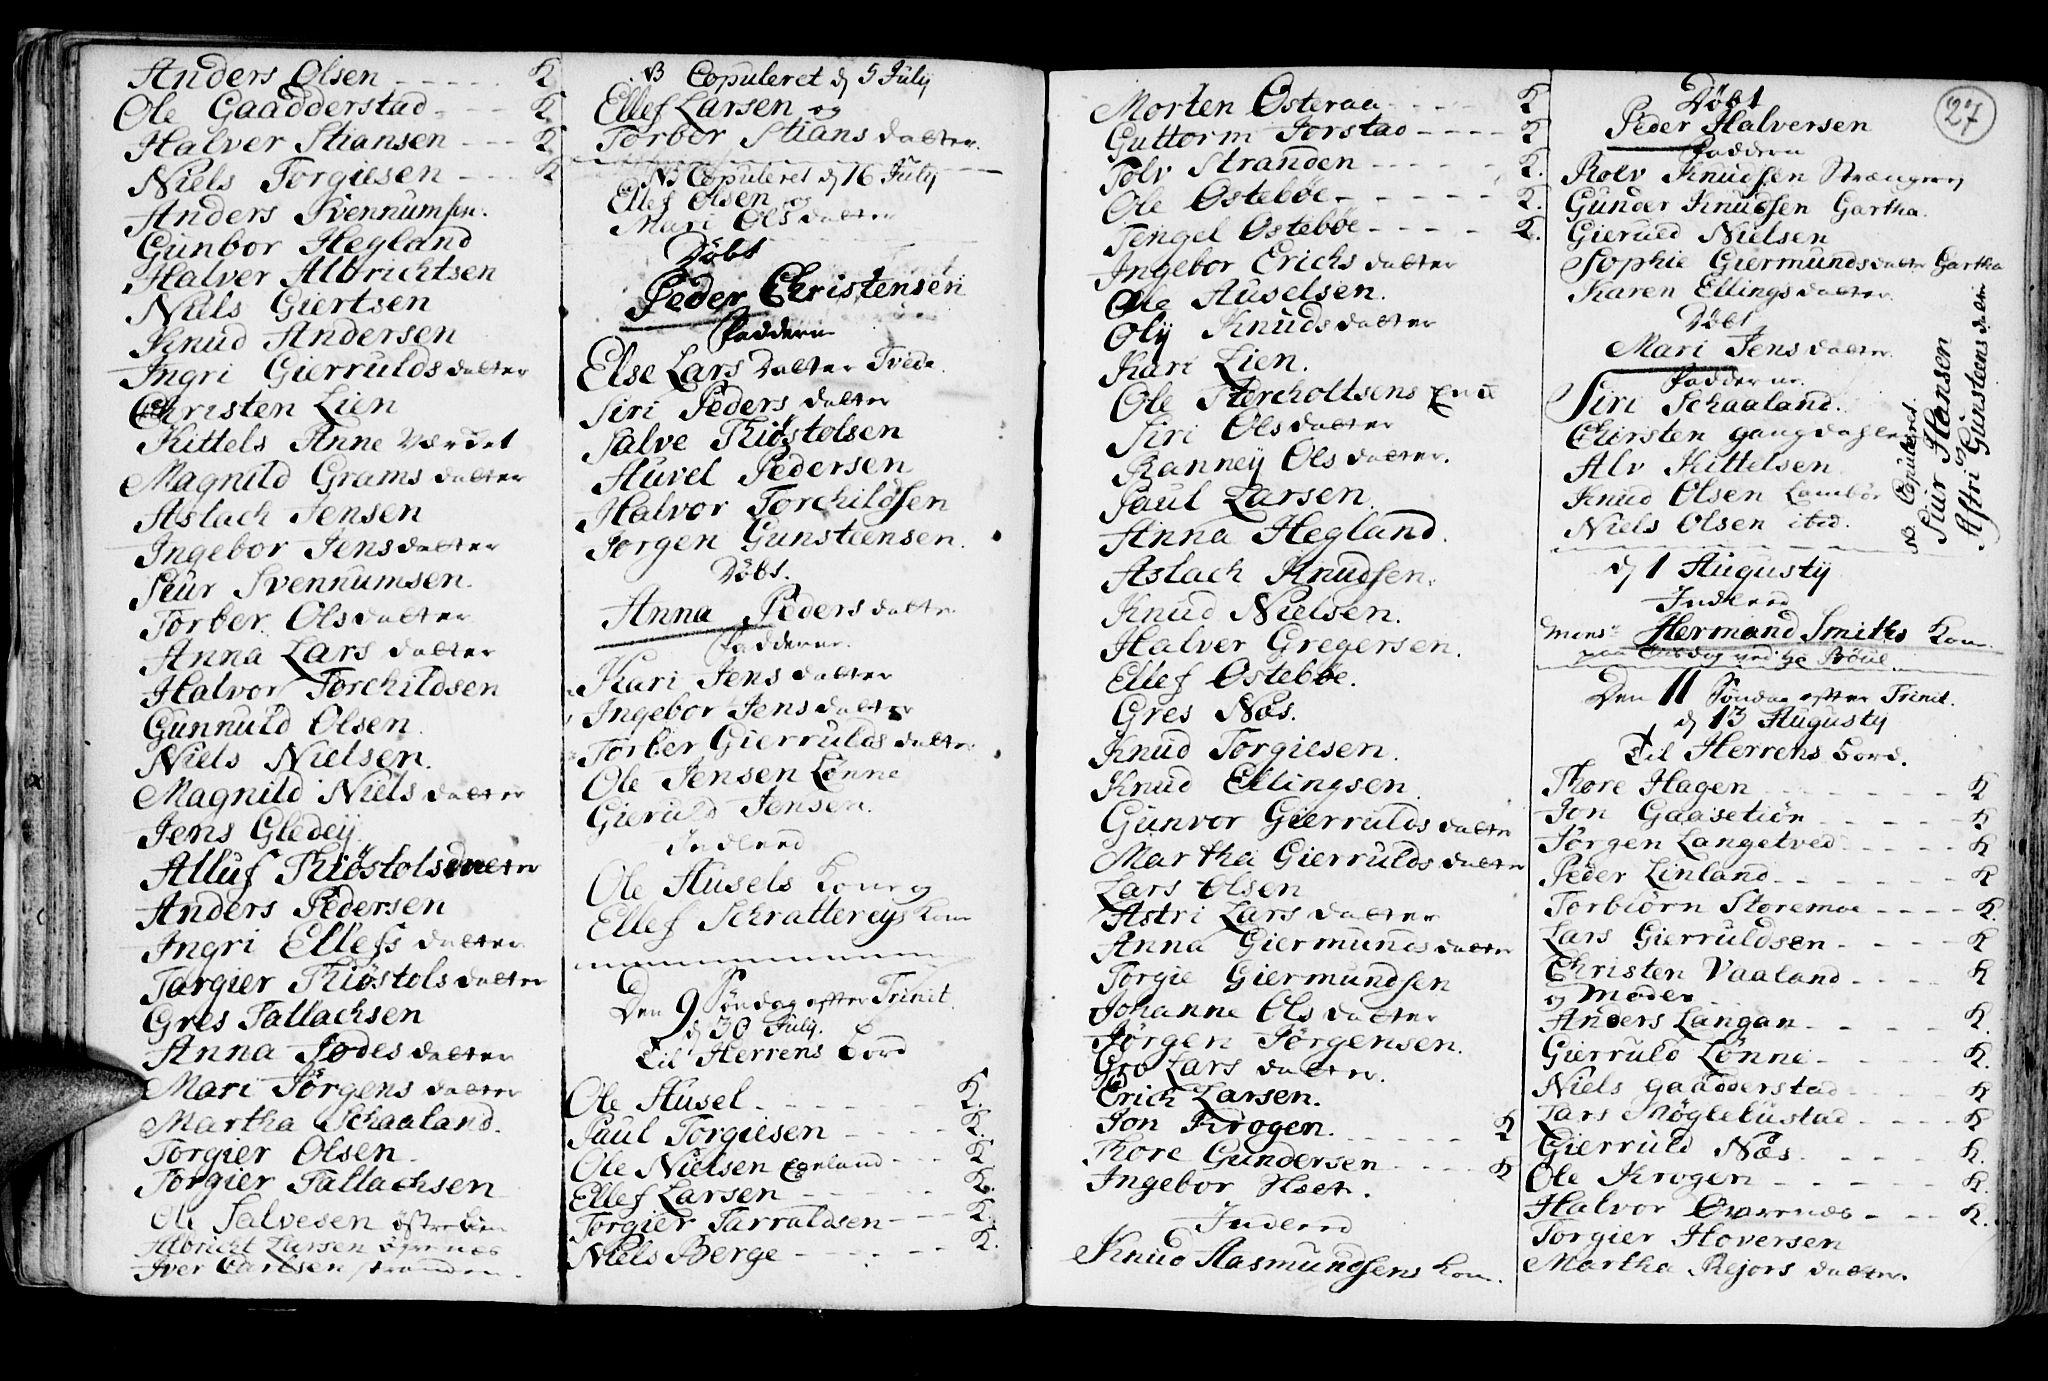 Anders Olsen - - - - - K
Ole Gaadderstad - - - K.
Halver Stiansen - - - K
Niels Torgiesen - - - K
Anders Svennumsen.
Gunbor Hegland
Halver Albrichtsen
Niels Giertsen
Knud Andersen
Ingri Gierrulds datter
Christen Lien
Kittels Anne
Magnild Grams datter
Aslach Jensen
Ingebor Jens datter
Siur Svennumsen.
Torber Ols datter
Anna Lars datter
Halvor Torchildsen
Gunnuld Olsen.
Niels Nielsen.
Magnild Niels datter
Jens Gledeij
Alluf Thiøstols datter
Anders Pedersen
Ingri Ellefs datter
Targier Thiøstols datter
Gres Tallachsen
Anna datter
Mari Jörgens datter
Martha Schaaland.
Torgier Olsen.
Torgier Tallachsen
Ole Salvesen
Albricht Larsen
Iver
NB Copuleret d 5 July
Ellef Larsen og
Torber Stians datter.
NB Copuleret d 16 July
Ellef Olsen og
Mari Ols datter
Döbt
Peder Christensen
Faddere
Else Lars datter Tvede.
Siri Peders datter
Salve Thiøstolsen
Auvel Pedersen
Halvor Torchildsen
Jorgen Gunsteensen.
Döbt.
Anna Peders datter
Fadderer.
Kari Jens datter
Ingebor Jens datter
Torber Gierrulds datter
Ole Jensen Lønne
Gieruld Jensen.
Indleed
Ole Ausels Kone og
Ellef Kone
Den 9 Söndag efter Trinit.
d 30 July.
Til Herrens Bord
Ole Ausel - - - - - K.
Paul Torgiesen - - - - K.
Ole Nielsen - - - K
Ellef Larsen - - - - - K.
Torgier Tarraldsen - - - K.
Niels Berge - - - - - K.
27
Morten Osteraa - - - - K
Guttorm Jorstad - - - - K
Tolv Stranden - - - - - K.
Ole Ostebøe - - - - - - K.
Tengel Ostebøe - - - - K.
Ingebor Erichs datter
Ole Auselsen.
Olij Knuds datter
Kari Lien.
Ole
Siri Ols datter
Ranneij Ols datter.
Paul Larsen.
Anna Hegland.
Aslach Knudsen.
Knud Nielsen.
Halver Gregersen.
Ellef Ostebøe.
Gres Næs.
Knud Torgiesen.
Knud Ellingsen.
Gunvor Gierrulds datter
Martha Gierrulds datter
Lars Olsen
Astri Lars datter
Anna Giermunds datter
Torgie Giermundsen
Johanne Ols datter
Jørgen Jørgensen.
Gro Lars datter.
Erich Larsen.
Jon Krogen. - - - - - K
Tore Gundersen - - - - K
Ingebor
Indleed
Knud Aasmundsens Kone.
Döbt
Peder Halversen
Faddere
Rolv Knudsen
Gunder Knudsen Gartha.
Gieruld Nielsen
Sophie Giermunds datter Gartha
Karen Ellings datter.
Döbt
Mari Jens datter
Fadderne.
Siri Schaaland.
Christen
Alv Kittelsen.
Knud Olsen
Niels Olsen ibid.
NB. Copuleret.
Siur Hansen
og
Astri Gunsteens datter
d 1 Augusty
Indleed
Mons: Hermand Smiths Kone.
Den 11 Söndag efter Trinit.
d 13 Augusty
Til Herrens Bord.
Tore Hagen - - - - - - - K
Jon Gaasetiön - - - - - K
Jørgen Langetved - - - - - K
Peder Linland - - - - - - K
Torbiörn Storemoe - - - - K.
Lars Gierruldsen - - - - K
Christen Vaaland - - - - K
og Moder
Anders Langan - - - - - K.
Gierruld Lønne - - - - - K.
Niels Gaadderstad - - - - K
Lars Møglebustad - - - - K
Gierruld Næs - - - - - - K.
Ole Krogen - - - - - - K.
Halvor - - - - K.
Torgier Hoversen
Martha Rejors datter.